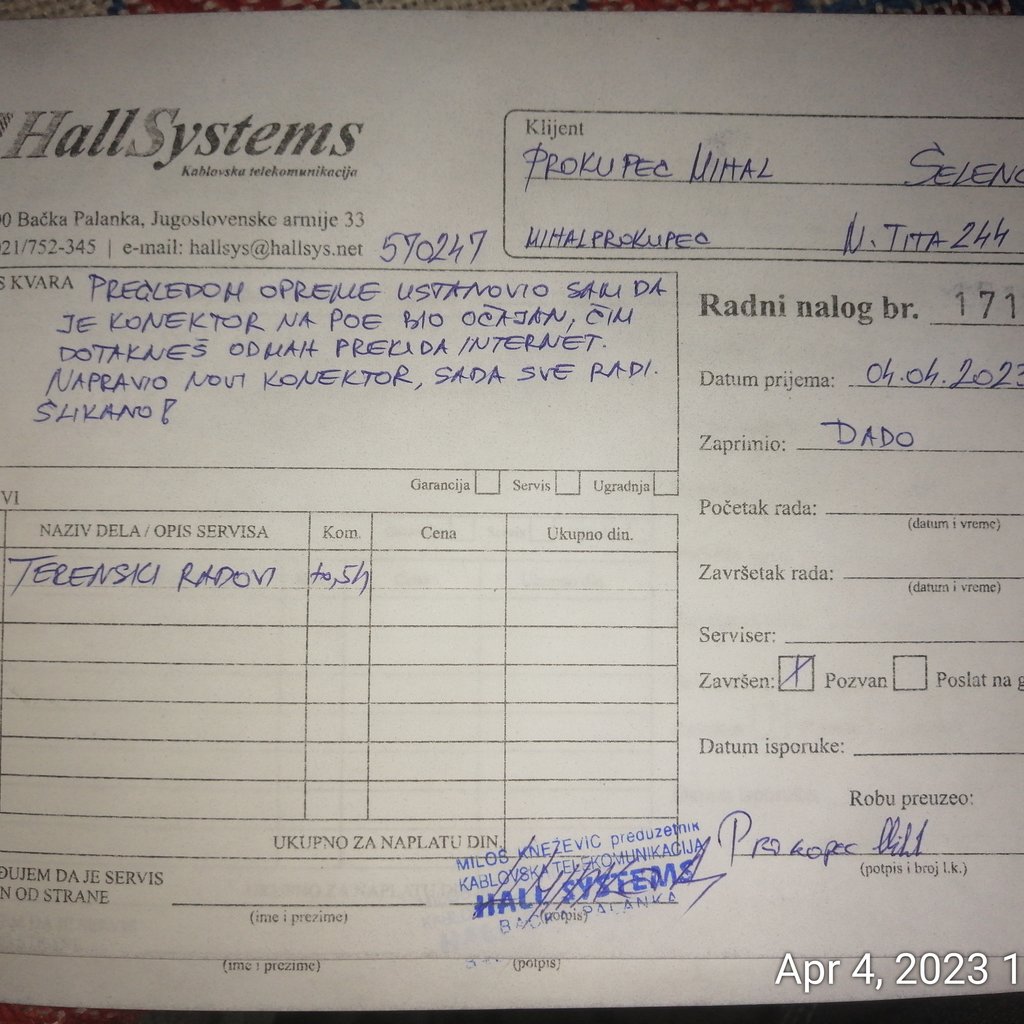 HallSystems
Kablovska telekomunikacija
00 Bačka Palanka, Jugoslovenske armije 33
021/752-345 | e-mail: hallsys@hallsys.net 570247
Klijent
PROKUPEC MIHAL SELENC
MIHALPROKUPEC N. TITA 244
S KVARA PREGLEDOM OPREME USTANOVIO SAM DA
JE KONEKTOR NA POE BIO OČAJAN, ČIM
DOTAKNEŠ ODMAH PREKIDA INTERNET.
NAPRAVIO NOVI KONEKTOR, SADA SVE RADI.
SLIKANO!
Garancija Servis Ugradnja
VI
NAZIV DELA / OPIS SERVISA Kom. Cena Ukupno din.
TERENSKI RADOVI 0,5h
UKUPNO ZA NAPLATU DIN.
Radni nalog br. 171
Datum prijema: 04.04.2023
Zaprimio: DADO
Početak rada:
(datum i vreme)
Završetak rada:
(datum i vreme)
Serviser:
Završen: Pozvan Poslat na g
Datum isporuke:
Robu preuzeo:
Prokopec
(potpis i broj l.k.)
ĐUJEM DA JE SERVIS
N OD STRANE
(ime i prezime) (potpis)
MILOŠ KNEŽEVIĆ preduzetnik
KABLOVSKA TELEKOMUNIKACIJA
HALL SYSTEMS
BAČKA PALANKA
(ime i prezime) (potpis)
Apr 4, 2023 1